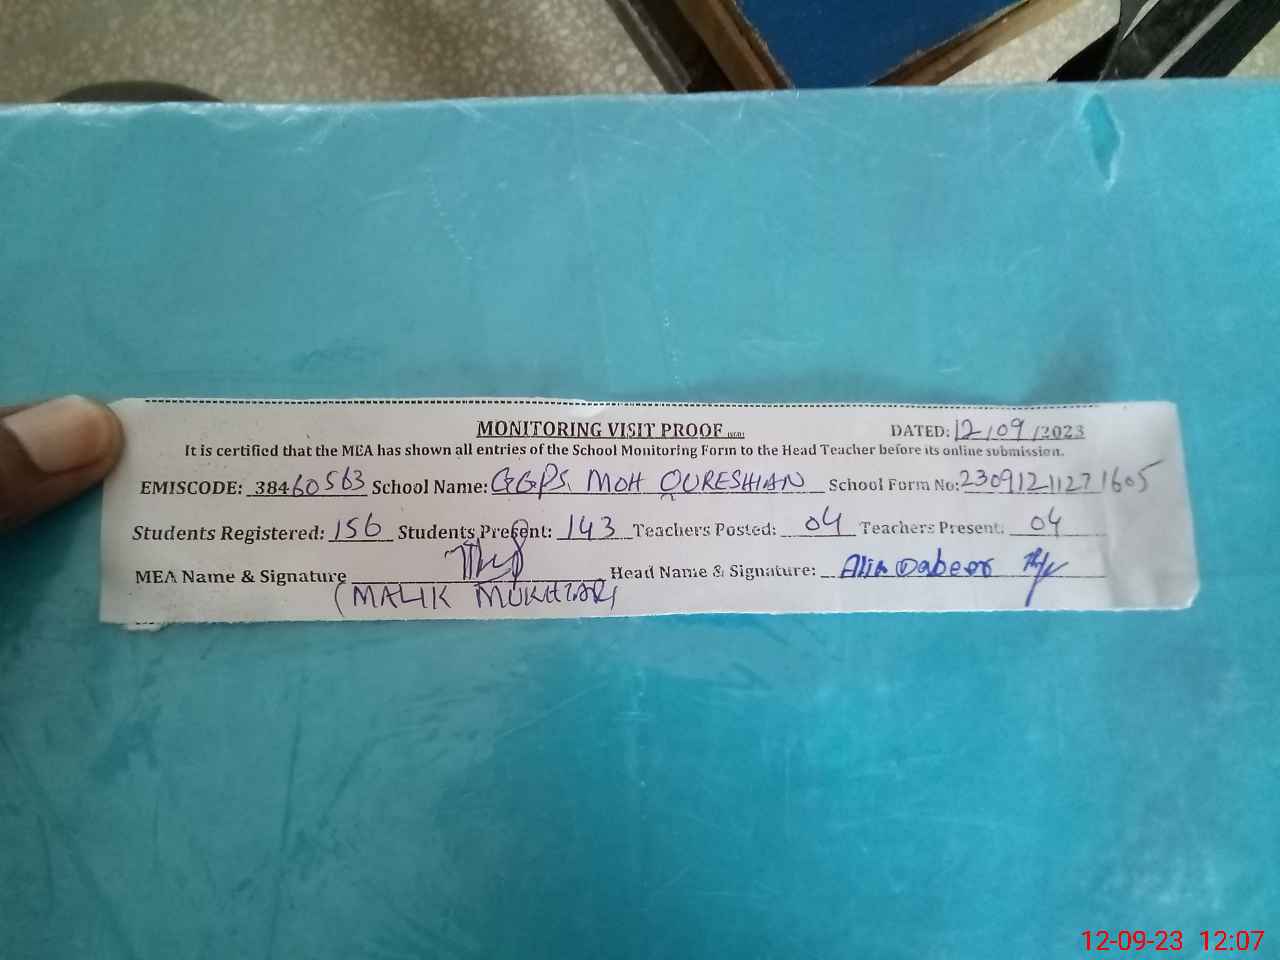 MONITORING VISIT PROOF
DATED: 12/09/2023
It is certified that the MEA has shown all entries of the School Monitoring Form to the Head Teacher before its online submission.
EMISCODE: 38460563 School Name: GGPS. MOH QURESHIAN School Form No: 230912112271605
Students Registered: 156 Students Present: 143 Teachers Posted: 04 Teachers Present: 04
MEA Name & Signature Head Name & Signature:
(MALIK MUKHTAR)
12-09-23 12:07